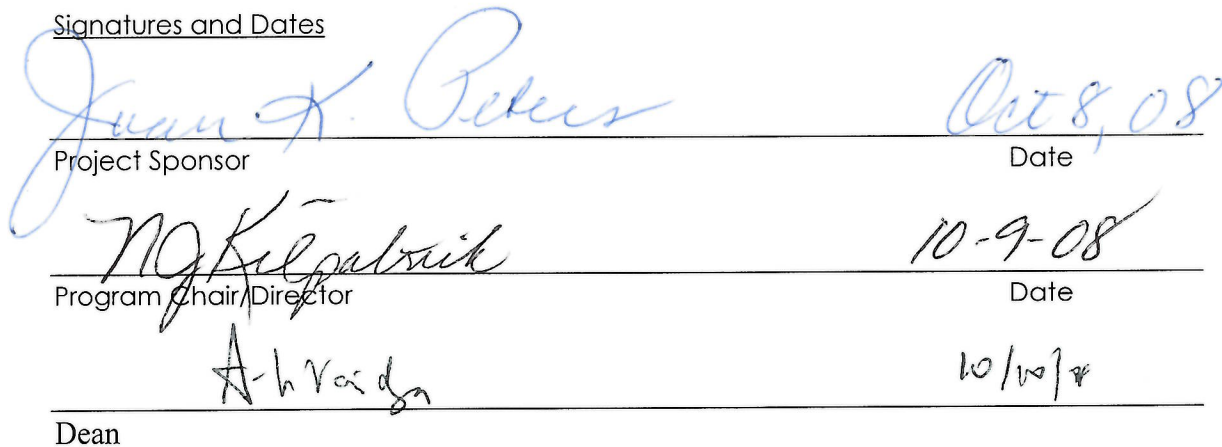 Signatures and Dates
Juan K. Peters Oct 8, 08
Project Sponsor Date
NJ Kilpatrick 10-9-08
Program Chair/Director Date
Dean